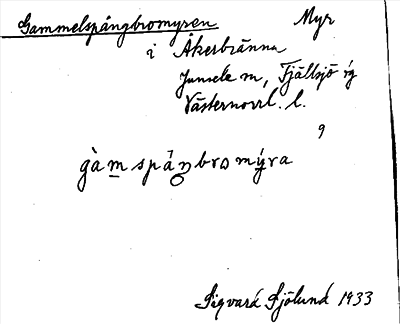 Gammelspångbromyren Myr
i Åkerbränna
Junsele m, Fjällsjö sg
Västernorrl. l.
9
gàmspåŋbromýra
Sigvard Sjölund 1933